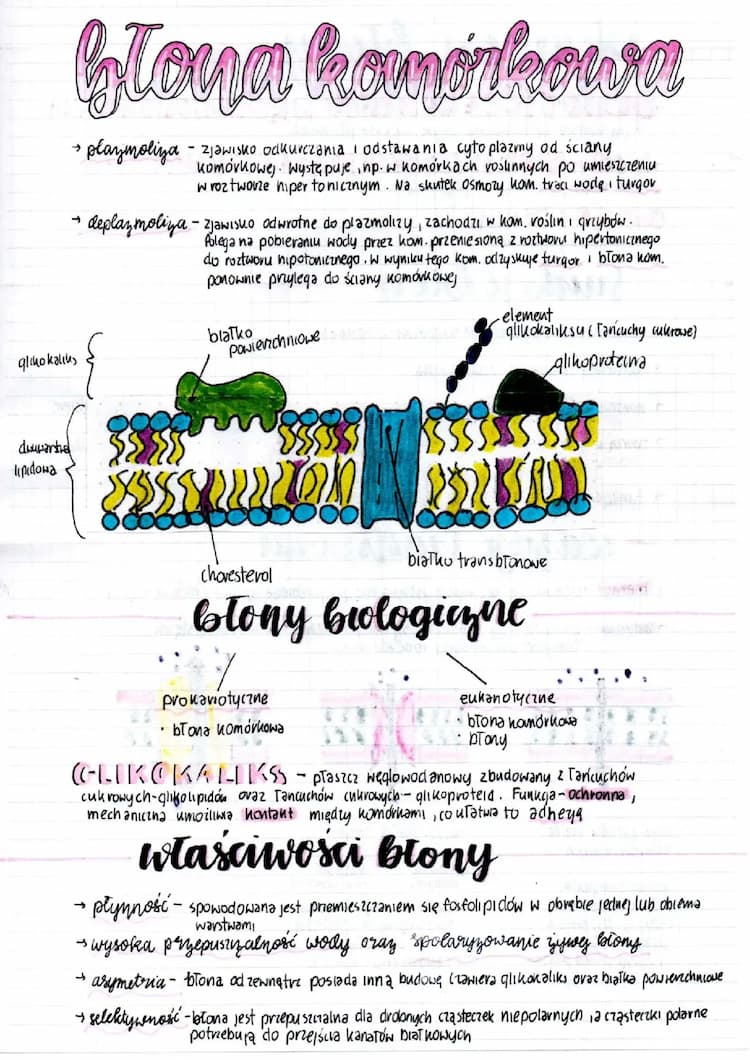 błona komórkowa
→ plazmoliza - zjawisko odkurczania i odstawania cytoplazmy od ściany
komórkowej. Występuje, np. w komórkach roślinnych po umieszczeniu
w roztworze hipertonicznym. Na skutek osmozy kom. traci wodę i turgor
→ deplazmoliza - zjawisko odwrotne do plazmolizy, zachodzi w kom. roślin i grzybów.
Polega na pobieraniu wody przez kom. przeniesioną z roztworu hipertonicznego
do roztworu hipotonicznego. W wyniku tego kom. odzyskuje turgor i błona kom.
ponownie przylega do ściany komórkowej
element
glikokaliksu (łańcuchy cukrowe)
białko
powierzchniowe
glikokaliks
glikoproteina
dwuwarstwa
lipidowa
białko transbłonowe
cholesterol
błony biologiczne
prokariotyczne
· błona komórkowa
eukariotyczne
· błona komórkowa
· błony
GLIKOKALIKS - płaszcz węglowodanowy zbudowany z łańcuchów
cukrowych-glikolipidów oraz łańcuchów cukrowych - glikoproteid. Funkcja - ochronna,
mechaniczna umożliwia kontakt między komórkami, co ułatwia to adhezją
właściwości błony
→ płynność - spowodowana jest przemieszczaniem się fosfolipidów w obrębie jednej lub obiema
warstwami
→ wysoka przepuszczalność wody oraz spolaryzowanie żywej błony
→ asymetria - błona od zewnątrz posiada inną budowę (zawiera glikokaliks oraz białka powierzchniowe
→ selektywność - błona jest przepuszczalna dla drobnych cząsteczek niepolarnych, a cząsteczki polarne
potrzebują do przejścia kanałów białkowych